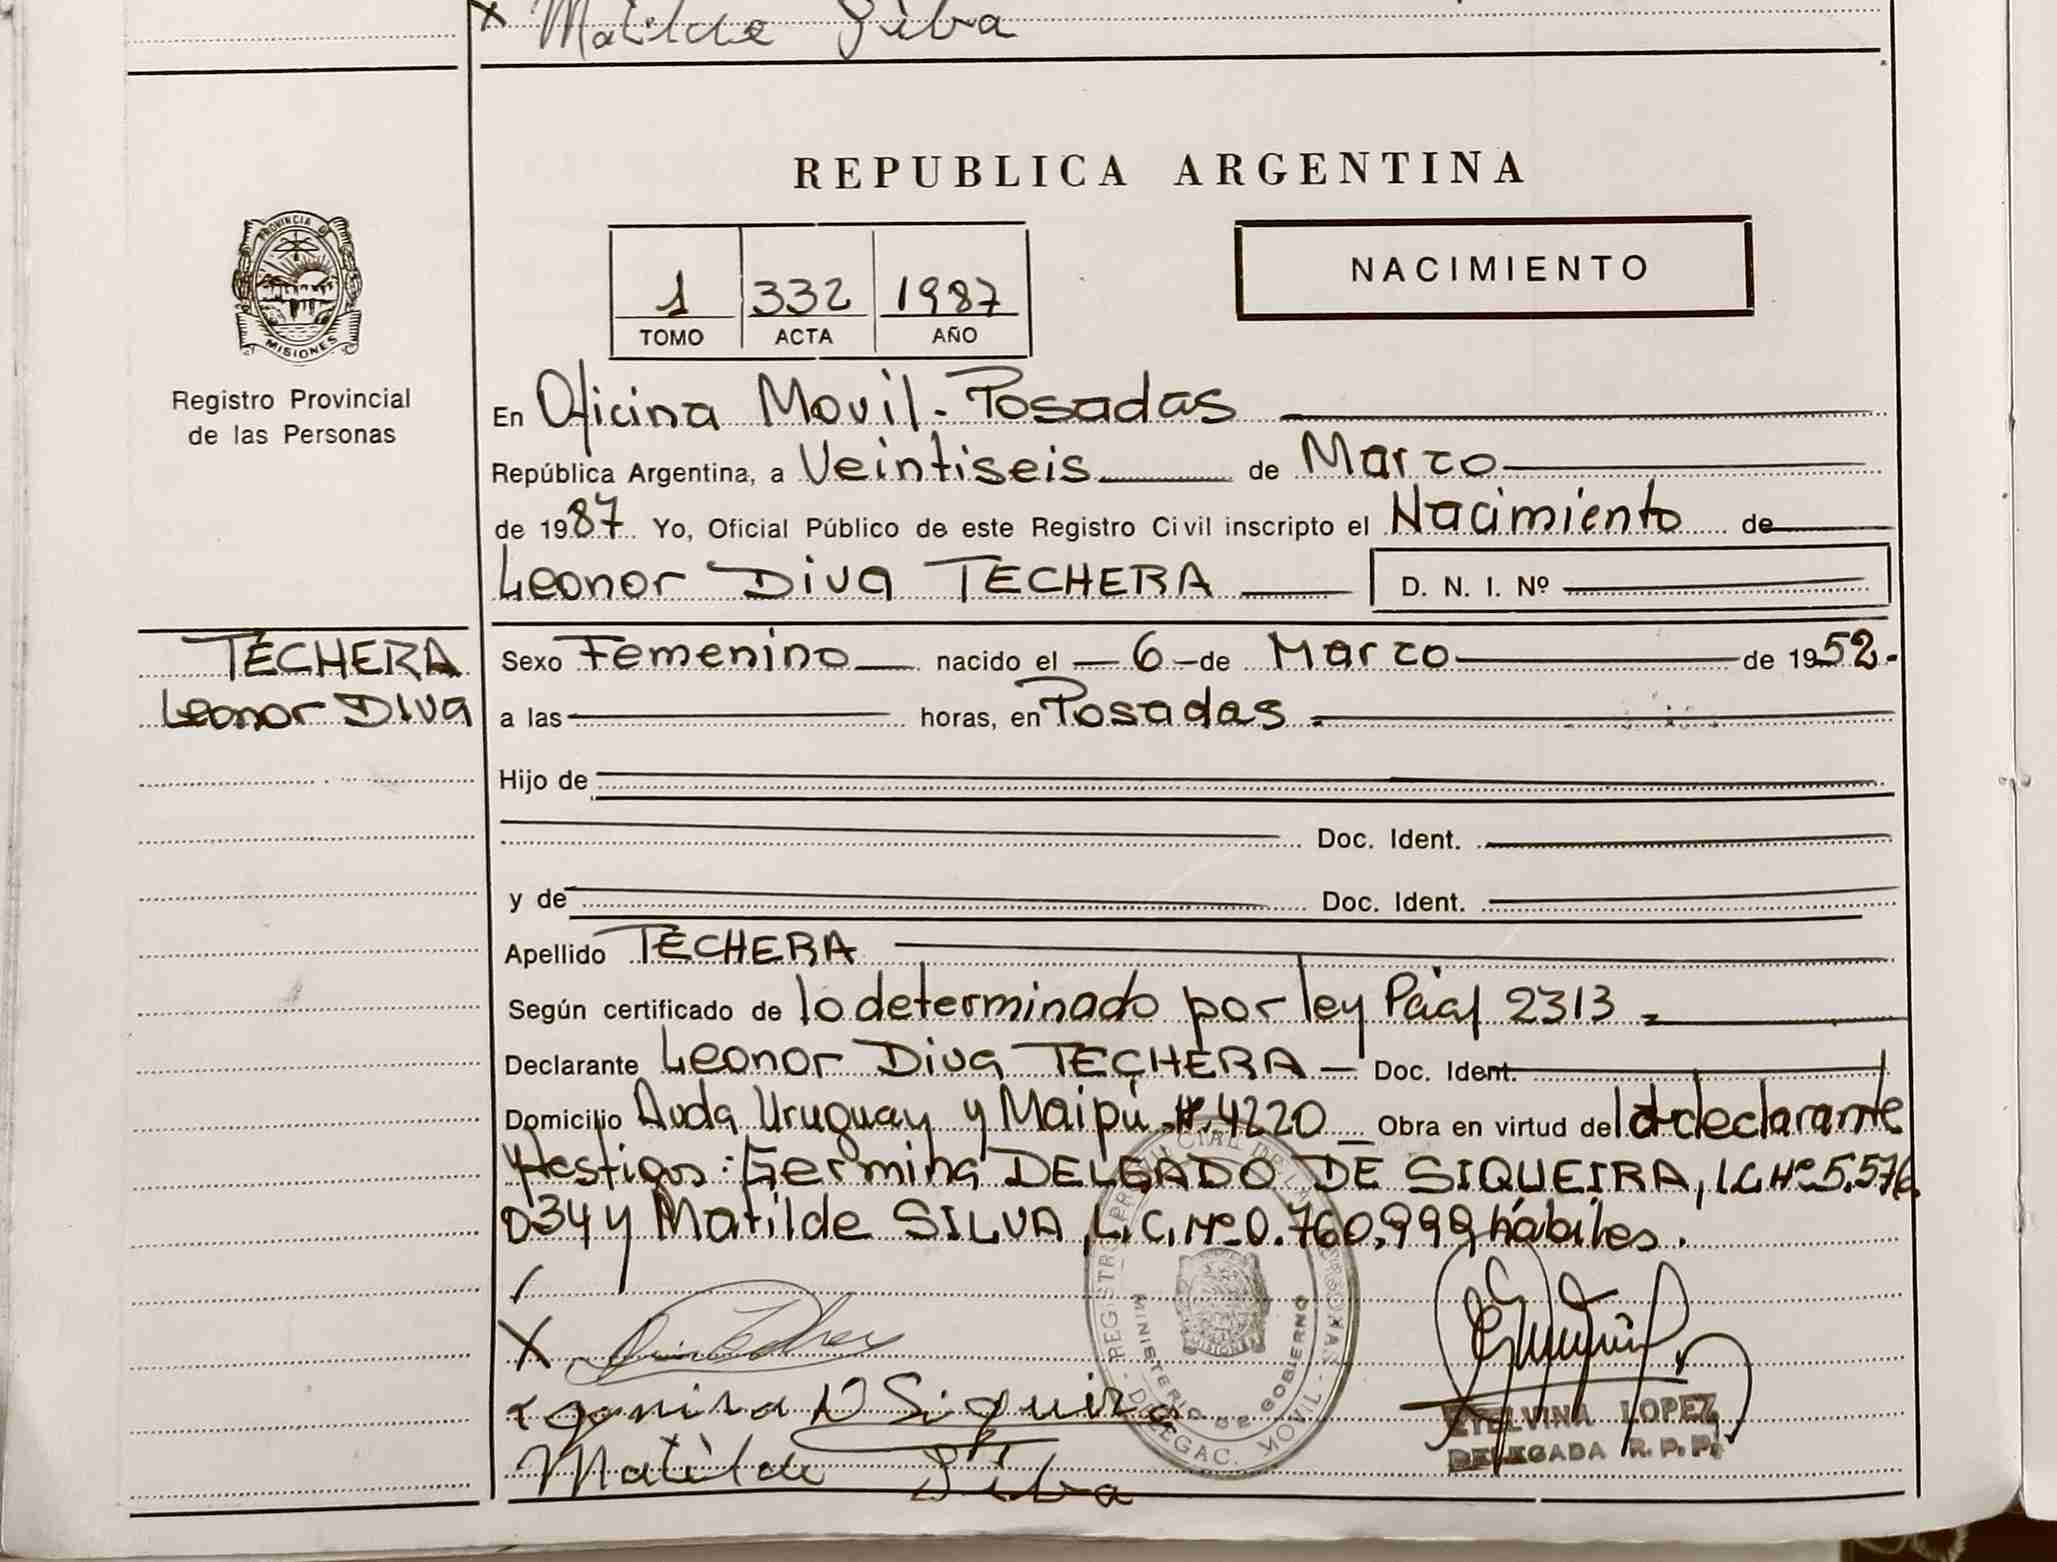 x Matilde Silva
REPUBLICA ARGENTINA
PROVINCIA DE
MISIONES
Registro Provincial
de las Personas
1 332 1987
TOMO ACTA AÑO
NACIMIENTO
En Oficina Movil - Posadas
República Argentina, a Veintiseis de Marzo
de 1987. Yo, Oficial Público de este Registro Civil inscripto el Nacimiento de
Leonor Diva TECHERA D. N. I. Nº
TECHERA
Leonor Diva
Sexo Femenino nacido el 6 de Marzo de 1952.
a las horas, en Posadas
Hijo de
Doc. Ident.
y de Doc. Ident.
Apellido TECHERA
Según certificado de lo determinado por ley Pcial 2313
Declarante Leonor Diva TECHERA Doc. Ident.
Domicilio Avda Uruguay y Maipú Nº 4220 Obra en virtud de la declarante
y testigos: DELGADO DE SIQUEIRA, L.C. Nº 5.576.
034 y Matilde SILVA, L.C. Nº 0.760.999 hábiles.
X
x D Siqueira
Matilde Silva
REGISTRO PROVINCIAL DE LAS PERSONAS
MINISTERIO DE GOBIERNO
DELEGAC. MOVIL
ETELVINA LOPEZ
DELEGADA R. P. P.